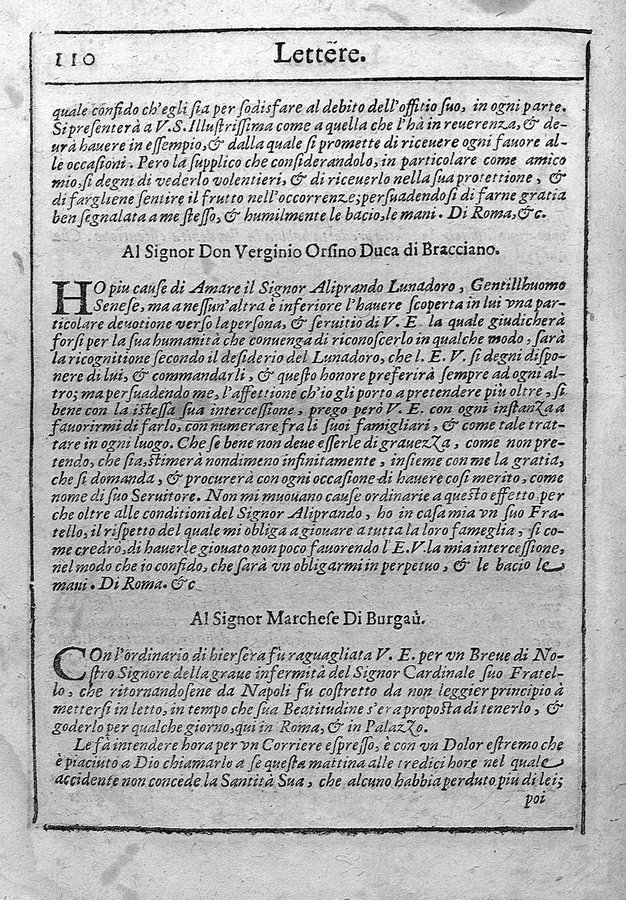 110 Lettere.
quale confido ch'egli sia per sodisfare al debito dell'offitio suo, in ogni parte.
Si presenterà a V.S. Illustrissima come a quella che l'hà in reuerenza, & de-
urà hauere in essempio, & dalla quale si promette di riceuere ogni fauore al-
le occasioni. Pero la supplico che considerandolo, in particolare come amico
mio, si degni di vederlo volentieri, & di riceuerlo nella sua protettione, &
di fargliene sentire il frutto nell'occorrenze; persuadendosi di farne gratia
ben segnalata a me stesso, & humilmente le bacio, le mani. Di Roma, &c.
Al Signor Don Verginio Orsino Duca di Bracciano.
HO piu cause di Amare il Signor Aliprando Lunadoro, Gentilhuomo
Senese, ma a nessun'altra è inferiore l'hauere scoperta in lui vna par-
ticolare deuotione verso la persona, & seruitio di V. E. la quale giudicherà
forsi per la sua humanità che conuenga di riconoscerlo in qualche modo, sarà
la ricognitione secondo il desiderio del Lunadoro, che l. E. V. si degni dispo-
nere di lui, & commandarli, & questo honore preferirà sempre ad ogni al-
tro; ma persuadendo me, l'affettione ch'io gli porto a pretendere più oltre, si
bene con la istessa sua intercessione, prego però V. E. con ogni instanza a
fauorirmi di farlo, con numerare fra li suoi famigliari, & come tale trat-
tare in ogni luogo. Che se bene non deue esserle di grauezza, come non pre-
tendo, che sia, stimerà nondimeno infinitamente, insieme con me la gratia,
che si domanda, & procurerà con ogni occasione di hauere cosi merito, come
nome di suo Seruitore. Non mi muouano cause ordinarie a questo effetto per
che oltre alle conditioni del Signor Aliprando, ho in casa mia vn suo Fra-
tello, il rispetto del quale mi obliga a giouare a tutta la loro fameglia, si co-
me credrò, di hauerle giouato non poco fauorendo l'E.V. la mia intercessione,
nel modo che io confido, che sarà vn obligarmi in perpetuo, & le bacio le
mani. Di Roma. &c
Al Signor Marchese Di Burgaù.
COn l'ordinario di hiersera fù raguagliata V. E. per vn Breue di No-
stro Signore della graue infermità del Signor Cardinale suo Fratel-
lo, che ritornandosene da Napoli fu costretto da non leggier principio à
mettersi in letto, in tempo che sua Beatitudine s'era proposta di tenerlo, &
goderlo per qualche giorno, qui in Roma, & in Palazzo.
Le fà intendere hora per vn Corriere espresso, è con vn Dolor estremo che
è piaciuto a Dio chiamarlo a se questa mattina alle tredici hore nel quale
accidente non concede la Santità Sua, che alcuno habbia perduto piu di lei;
poi